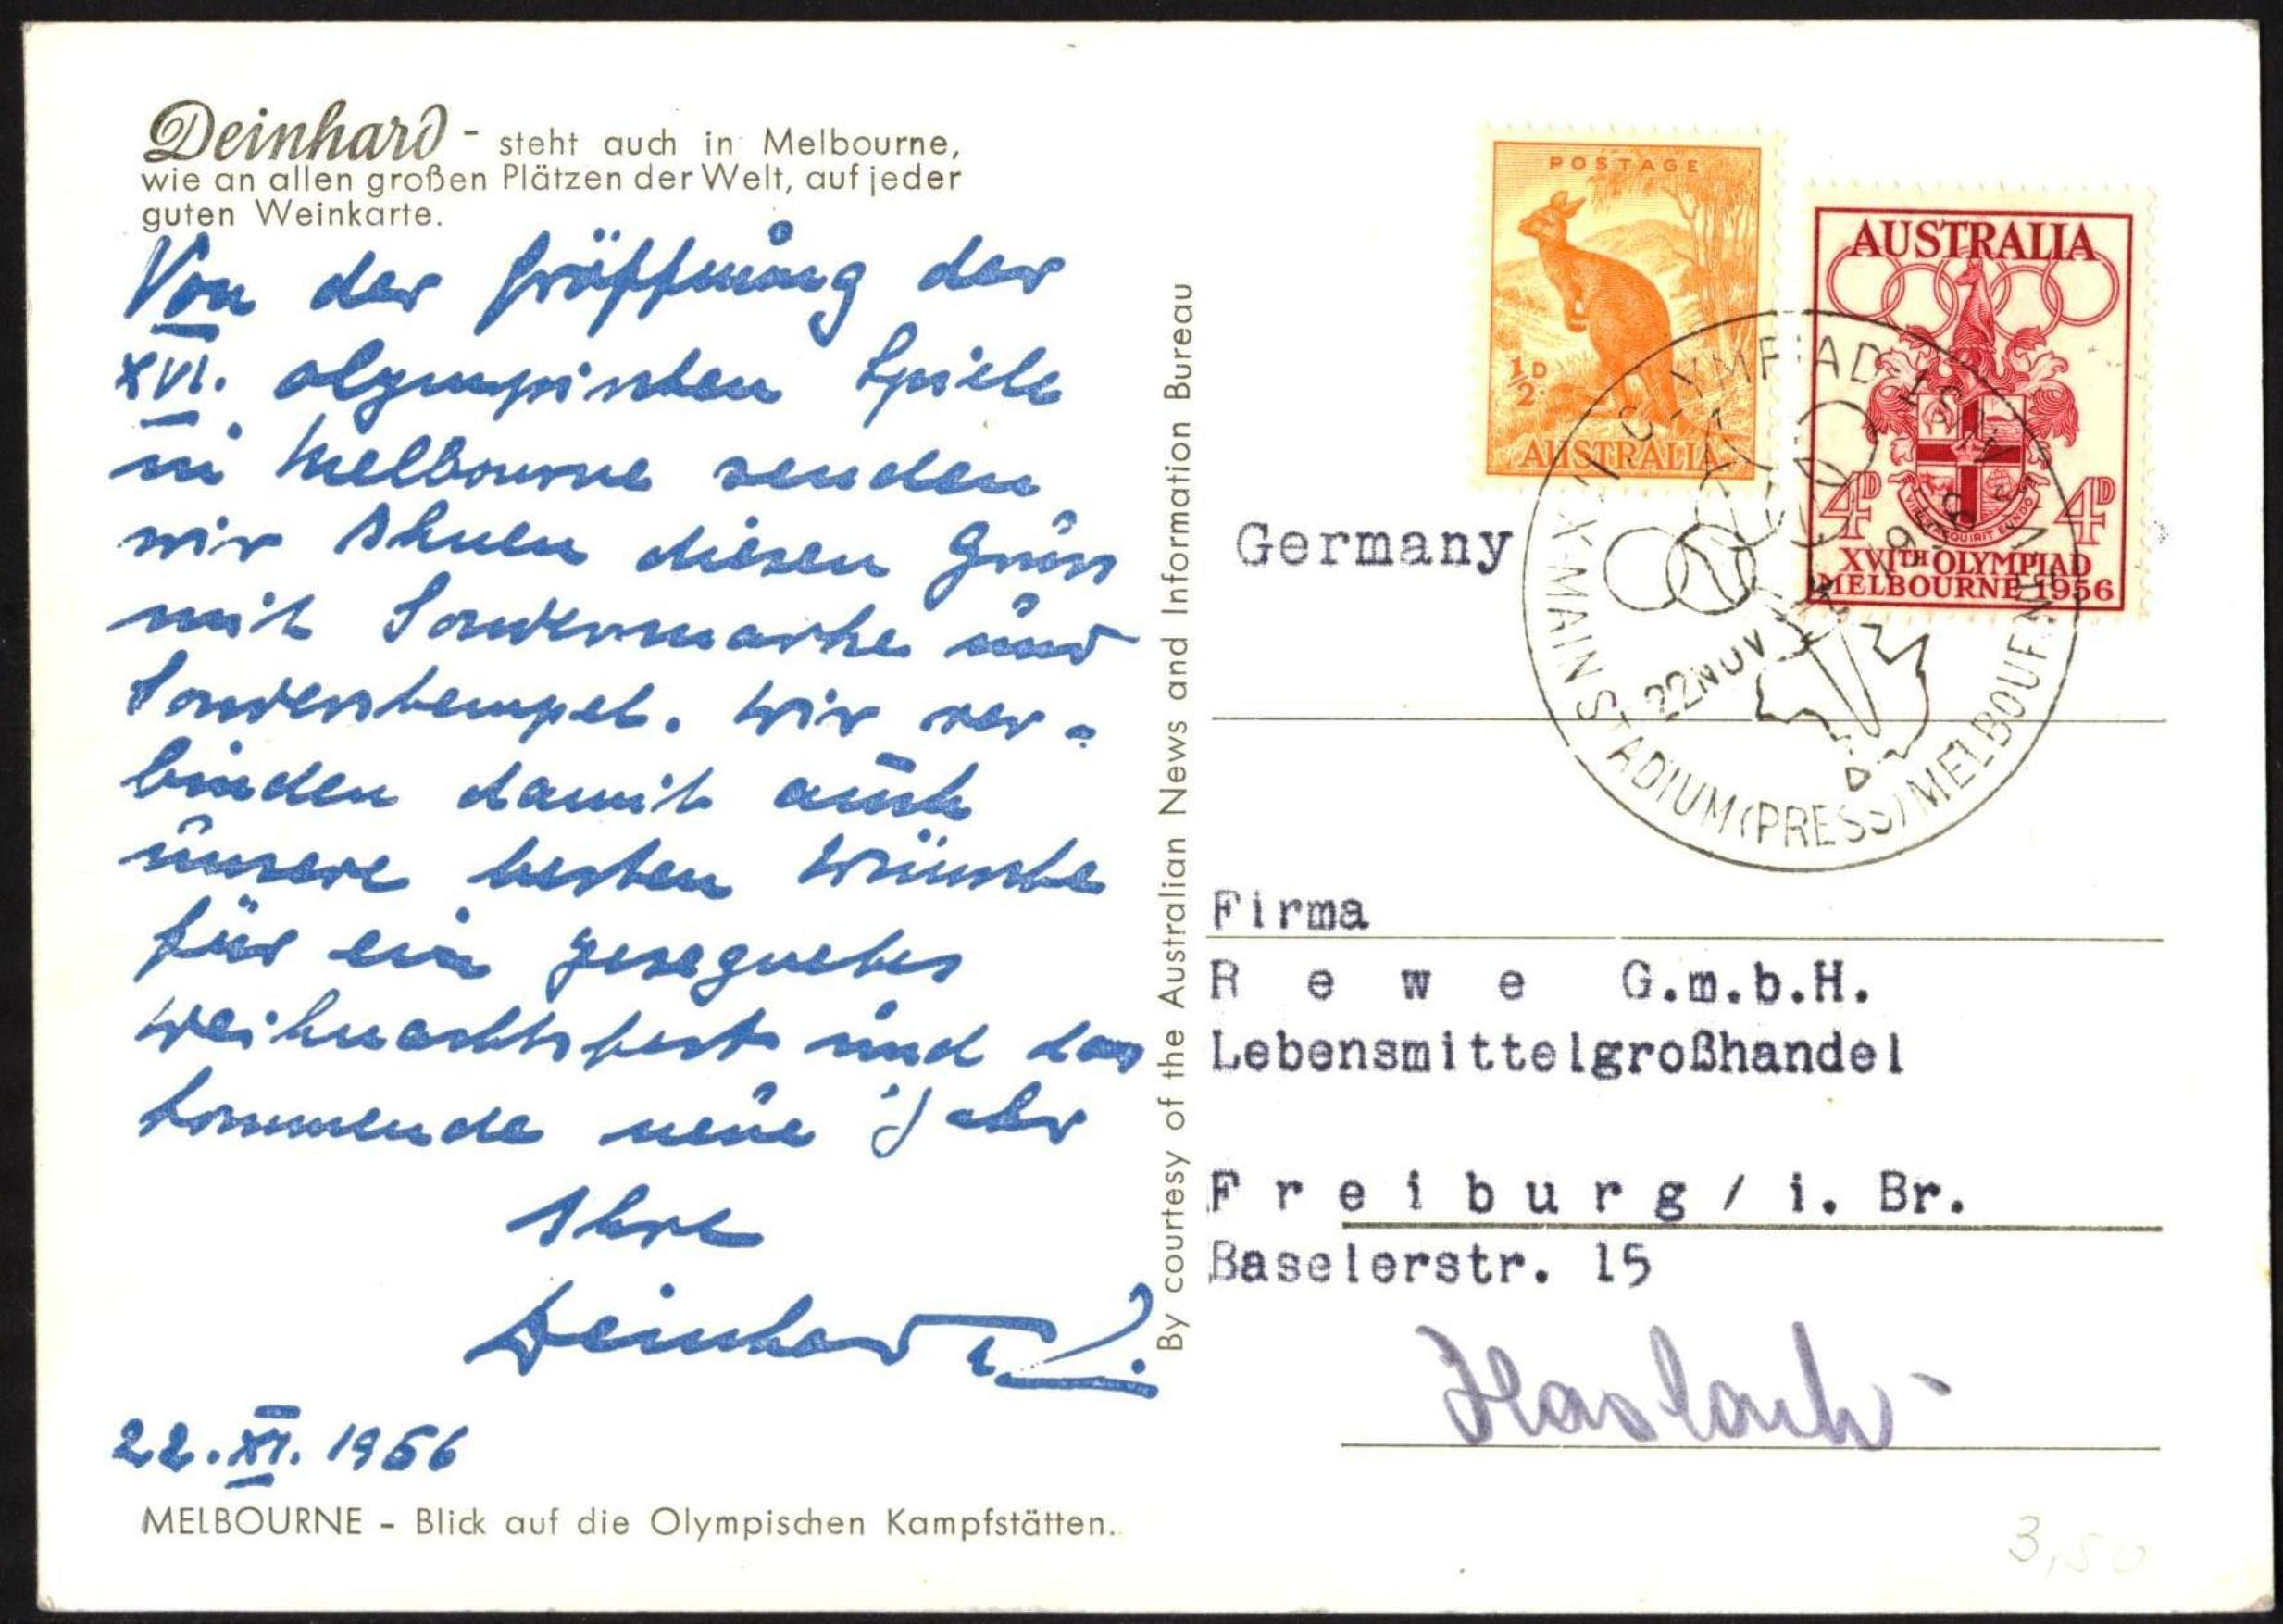 Deinhard - steht auch in Melbourne,
wie an allen großen Plätzen der Welt, auf jeder
guten Weinkarte.
Von der Eröffnung der
XVI. olympischen Spiele
in Melbourne senden
wir Ihnen diesen Gruss
mit Sondermarke und
Sonderstempel. Wir ver-
binden damit auch
unsere besten Wünsche
für ein gesegnetes
Weihnachtsfest und das
kommende neue Jahr
Ihre
Deinhard
22. XI. 1956
MELBOURNE - Blick auf die Olympischen Kampfstätten.
By courtesy of the Australian News and Information Bureau
POSTAGE
½D
AUSTRALIA
AUSTRALIA
4D 4D
XVITH OLYMPIAD
MELBOURNE 1956
22 NOV
MAIN STADIUM (PRESS) MELBOURNE
Germany
Firma
R e w e G.m.b.H.
Lebensmittelgroßhandel
F r e i b u r g / i. Br.
Baselerstr. 15
Haslach
3,50